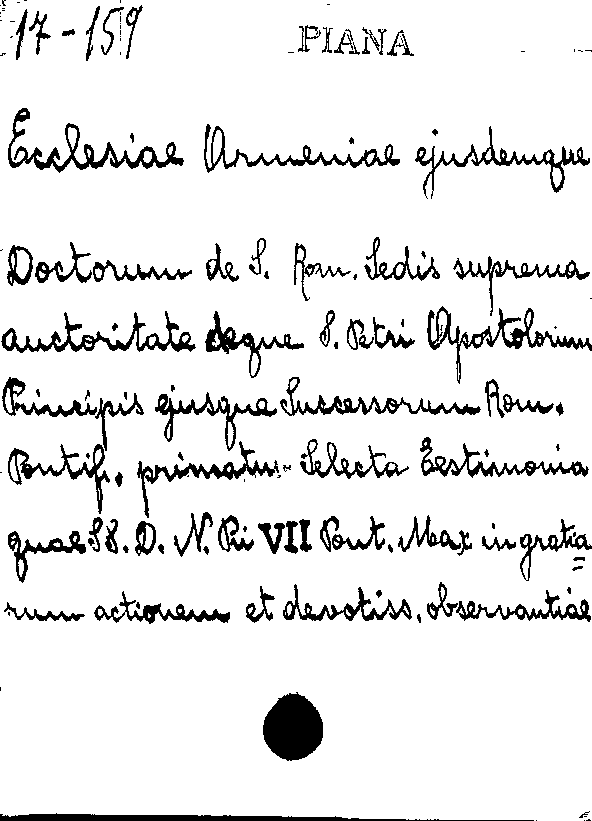 17-159
PIANA
Ecclesiae Armeniae ejusdemque
Doctorum de S. Rom. Sedis suprema
auctoritate deque S. Petri Apostolorum
Principis ejusque Successorum Rom.
Pontif. primatu Selecta Testimonia
quae SS. D. N. Pii VII Pont. Max in gratia
rum actionem et devotiss. observantiae